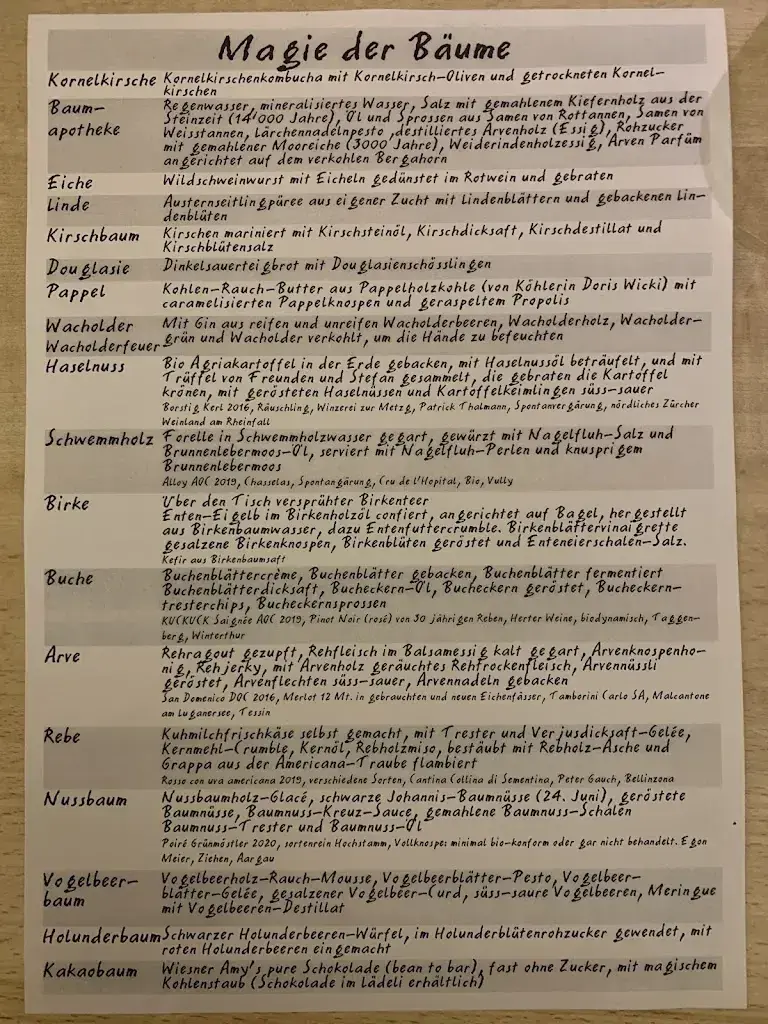 Magie der Bäume
Kornelkirsche Kornelkirschenkombucha mit Kornelkirsch-Oliven und getrockneten Kornel-
kirschen
Baum- Regenwasser, mineralisiertes Wasser, Salz mit gemahlenem Kiefernholz aus der
Steinzeit (14'000 Jahre), Öl und Sprossen aus Samen von Rottannen, Samen von
apotheke Weisstannen, Lärchennadelnpesto ,destilliertes Arvenholz (Essig), Rohzucker
mit gemahlener Mooreiche (3000 Jahre), Weiderindenholzessig, Arven Parfüm
angerichtet auf dem verkohlen Bergahorn
Eiche Wildschweinwurst mit Eicheln gedünstet im Rotwein und gebraten
Linde Austernseitlingpüree aus eigener Zucht mit lindenblättern und gebackenen Lin-
denblüten
Kirschbaum Kirschen mariniert mit Kirschsteinöl, Kirschdicksaft, Kirschdestillat und
Kirschblütensalz
Douglasie Dinkelsauerteigbrot mit Douglasienschösslingen
Pappel Kohlen-Rauch-Butter aus Pappelholzkohle (von Köhlerin Doris Wicki) mit
caramelisierten Pappelknospen und geraspeltem Propolis
Wacholder Mit Gin aus reifen und unreifen Wacholderbeeren, Wacholderholz, Wacholder-
Wacholderfeuer grün und Wacholder verkohlt, um die Hände zu befeuchten
Haselnuss Bio Agriakartoffel in der Erde gebacken, mit Haselnussöl beträufelt, und mit
Trüffel von Freunden und Stefan gesammelt, die gebraten die Kartoffel
krönen, mit gerösteten Haselnüssen und Kartoffelkeimlingen süss-sauer
Borstig Kerl 2016, Räuschling, Winzerei zur Metzg, Patrick Thalmann, Spontanvergärung, nördliches Zürcher
Weinland am Rheinfall
Schwemmholz Forelle in Schwemmholzwasser gegart, gewürzt mit Nagelfluh-Salz und
Brunnenlebermoos-Öl, serviert mit Nagelfluh-Perlen und knusprigem
Brunnenlebermoos
Alloy AOC 2019, Chasselas, Spontangärung, Cru de l'Hopital, Bio, Vully
Birke Über den Tisch versprühter Birkenteer
Enten-Eigelb im Birkenholzöl confiert, angerichtet auf Bagel, hergestellt
aus Birkenbaumwasser, dazu Entenfuttercrumble. Birkenblättervinaigrette
gesalzene Birkenknospen, Birkenblüten geröstet und Enteneierschalen-Salz.
Kefir aus Birkenbaumsaft
Buche Buchenblättercrème, Buchenblätter gebacken, Buchenblätter fermentiert
Buchenblätterdicksaft, Bucheckern-Öl, Bucheckern geröstet, Bucheckern-
tresterchips, Bucheckernsprossen
KUCKUCK Saignée AOC 2019, Pinot Noir (rosé) von 30 jährigen Reben, Herter Weine, biodynamisch, Taggen-
berg, Winterthur
Arve Rehragout gezupft, Rehfleisch im Balsamessig kalt gegart, Arvenknospenho-
nig, Rehjerky, mit Arvenholz geräuchtes Rehtrockenfleisch, Arvennüssli
geröstet, Arvenflechten süss-sauer, Arvennadeln gebacken
San Domenico DOC 2016, Merlot 12 Mt. in gebrauchten und neuen Eichenfässer, Tamborini Carlo SA, Malcantone
am Luganersee, Tessin
Rebe Kuhmilchfrischkäse selbst gemacht, mit Trester und Verjusdicksaft-Gelée,
Kernmehl-Crumble, Kernöl, Rebholzmiso, bestäubt mit Rebholz-Asche und
Grappa aus der Americana-Traube flambiert
Rosso con uva americana 2019, verschiedene Sorten, Cantina Collina di Sementina, Peter Gauch, Bellinzona
Nussbaum Nussbaumholz-Glacé, schwarze Johannis-Baumnüsse (24. Juni), geröstete
Baumnüsse, Baumnuss-Kreuz-Sauce, gemahlene Baumnuss-Schalen
Baumnuss-Trester und Baumnuss-Öl
Poiré Grünmöstler 2020, sortenrein Hochstamm, Vollknospe: minimal bio-konform oder gar nicht behandelt. Egon
Meier, Ziehen, Aargau
Vogelbeer- Vogelbeerholz-Rauch-Mousse, Vogelbeerblätter-Pesto, Vogelbeer-
baum blätter-Gelée, gesalzener Vogelbeer-Curd, süss-saure Vogelbeeren, Meringue
mit Vogelbeeren-Destillat
Holunderbaum Schwarzer Holunderbeeren-Würfel, im Holunderblütenrohzucker gewendet, mit
roten Holunderbeeren eingemacht
Kakaobaum Wiesner Amy's pure Schokolade (bean to bar), fast ohne Zucker, mit magischem
Kohlenstaub (Schokolade im lädeli erhältlich)